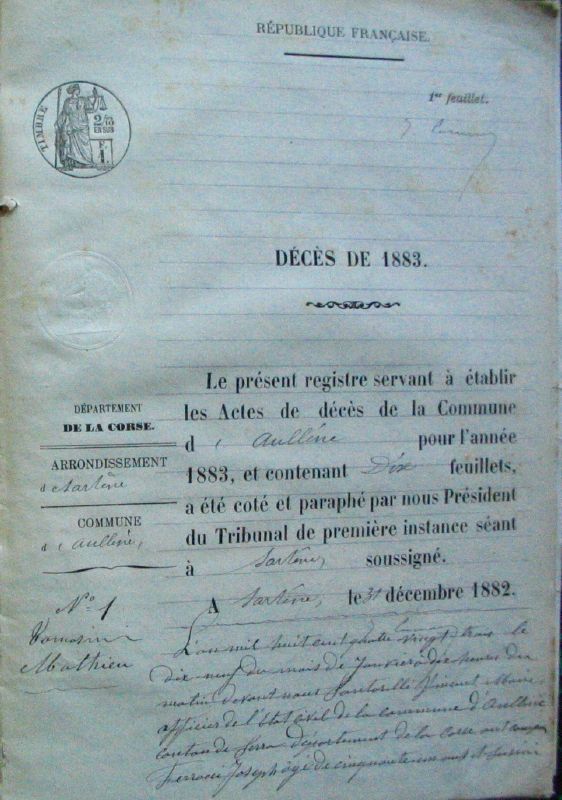 RÉPUBLIQUE FRANÇAISE.
1er feuillet.
TIMBRE
2/10
EN SUS
F.
1.
DÉCÈS DE 1883.
DÉPARTEMENT
DE LA CORSE.
ARRONDISSEMENT
d Sartène
COMMUNE
d'Aullène,
Le présent registre servant à établir
les Actes de décès de la Commune
d'Aullène pour l'année
1883, et contenant Dix feuillets,
a été coté et paraphé par nous Président
du Tribunal de première instance séant
à Sartène, soussigné.
A Sartène, le 31 décembre 1882.
N° 1
Tomasini
Mathieu
L'an mil huit cent quatre vingt trois le
dix neuf du mois de Janvier à dix heures du
matin devant nous Vincent Maire
officier de l'état civil de la commune d'Aullène
canton de Serra département de la Corse ont comparu
Joseph âgé de cinquante un ans et